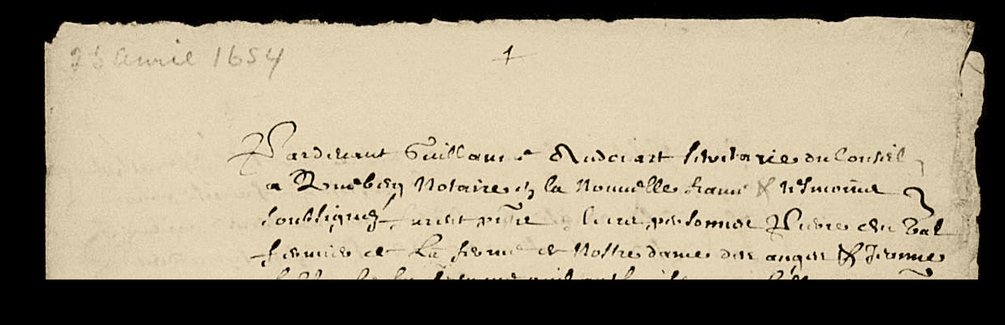 26 avril 1654
1
Pardevant Guillaume Audouart secretaire du Conseil
a Quebecq Notaire en la Nouvelle france & tesmoins
soubsignez furent pnts leurs personnes Pierre du Val
fermier de La ferme de Nostre dame des anges & Jeanne